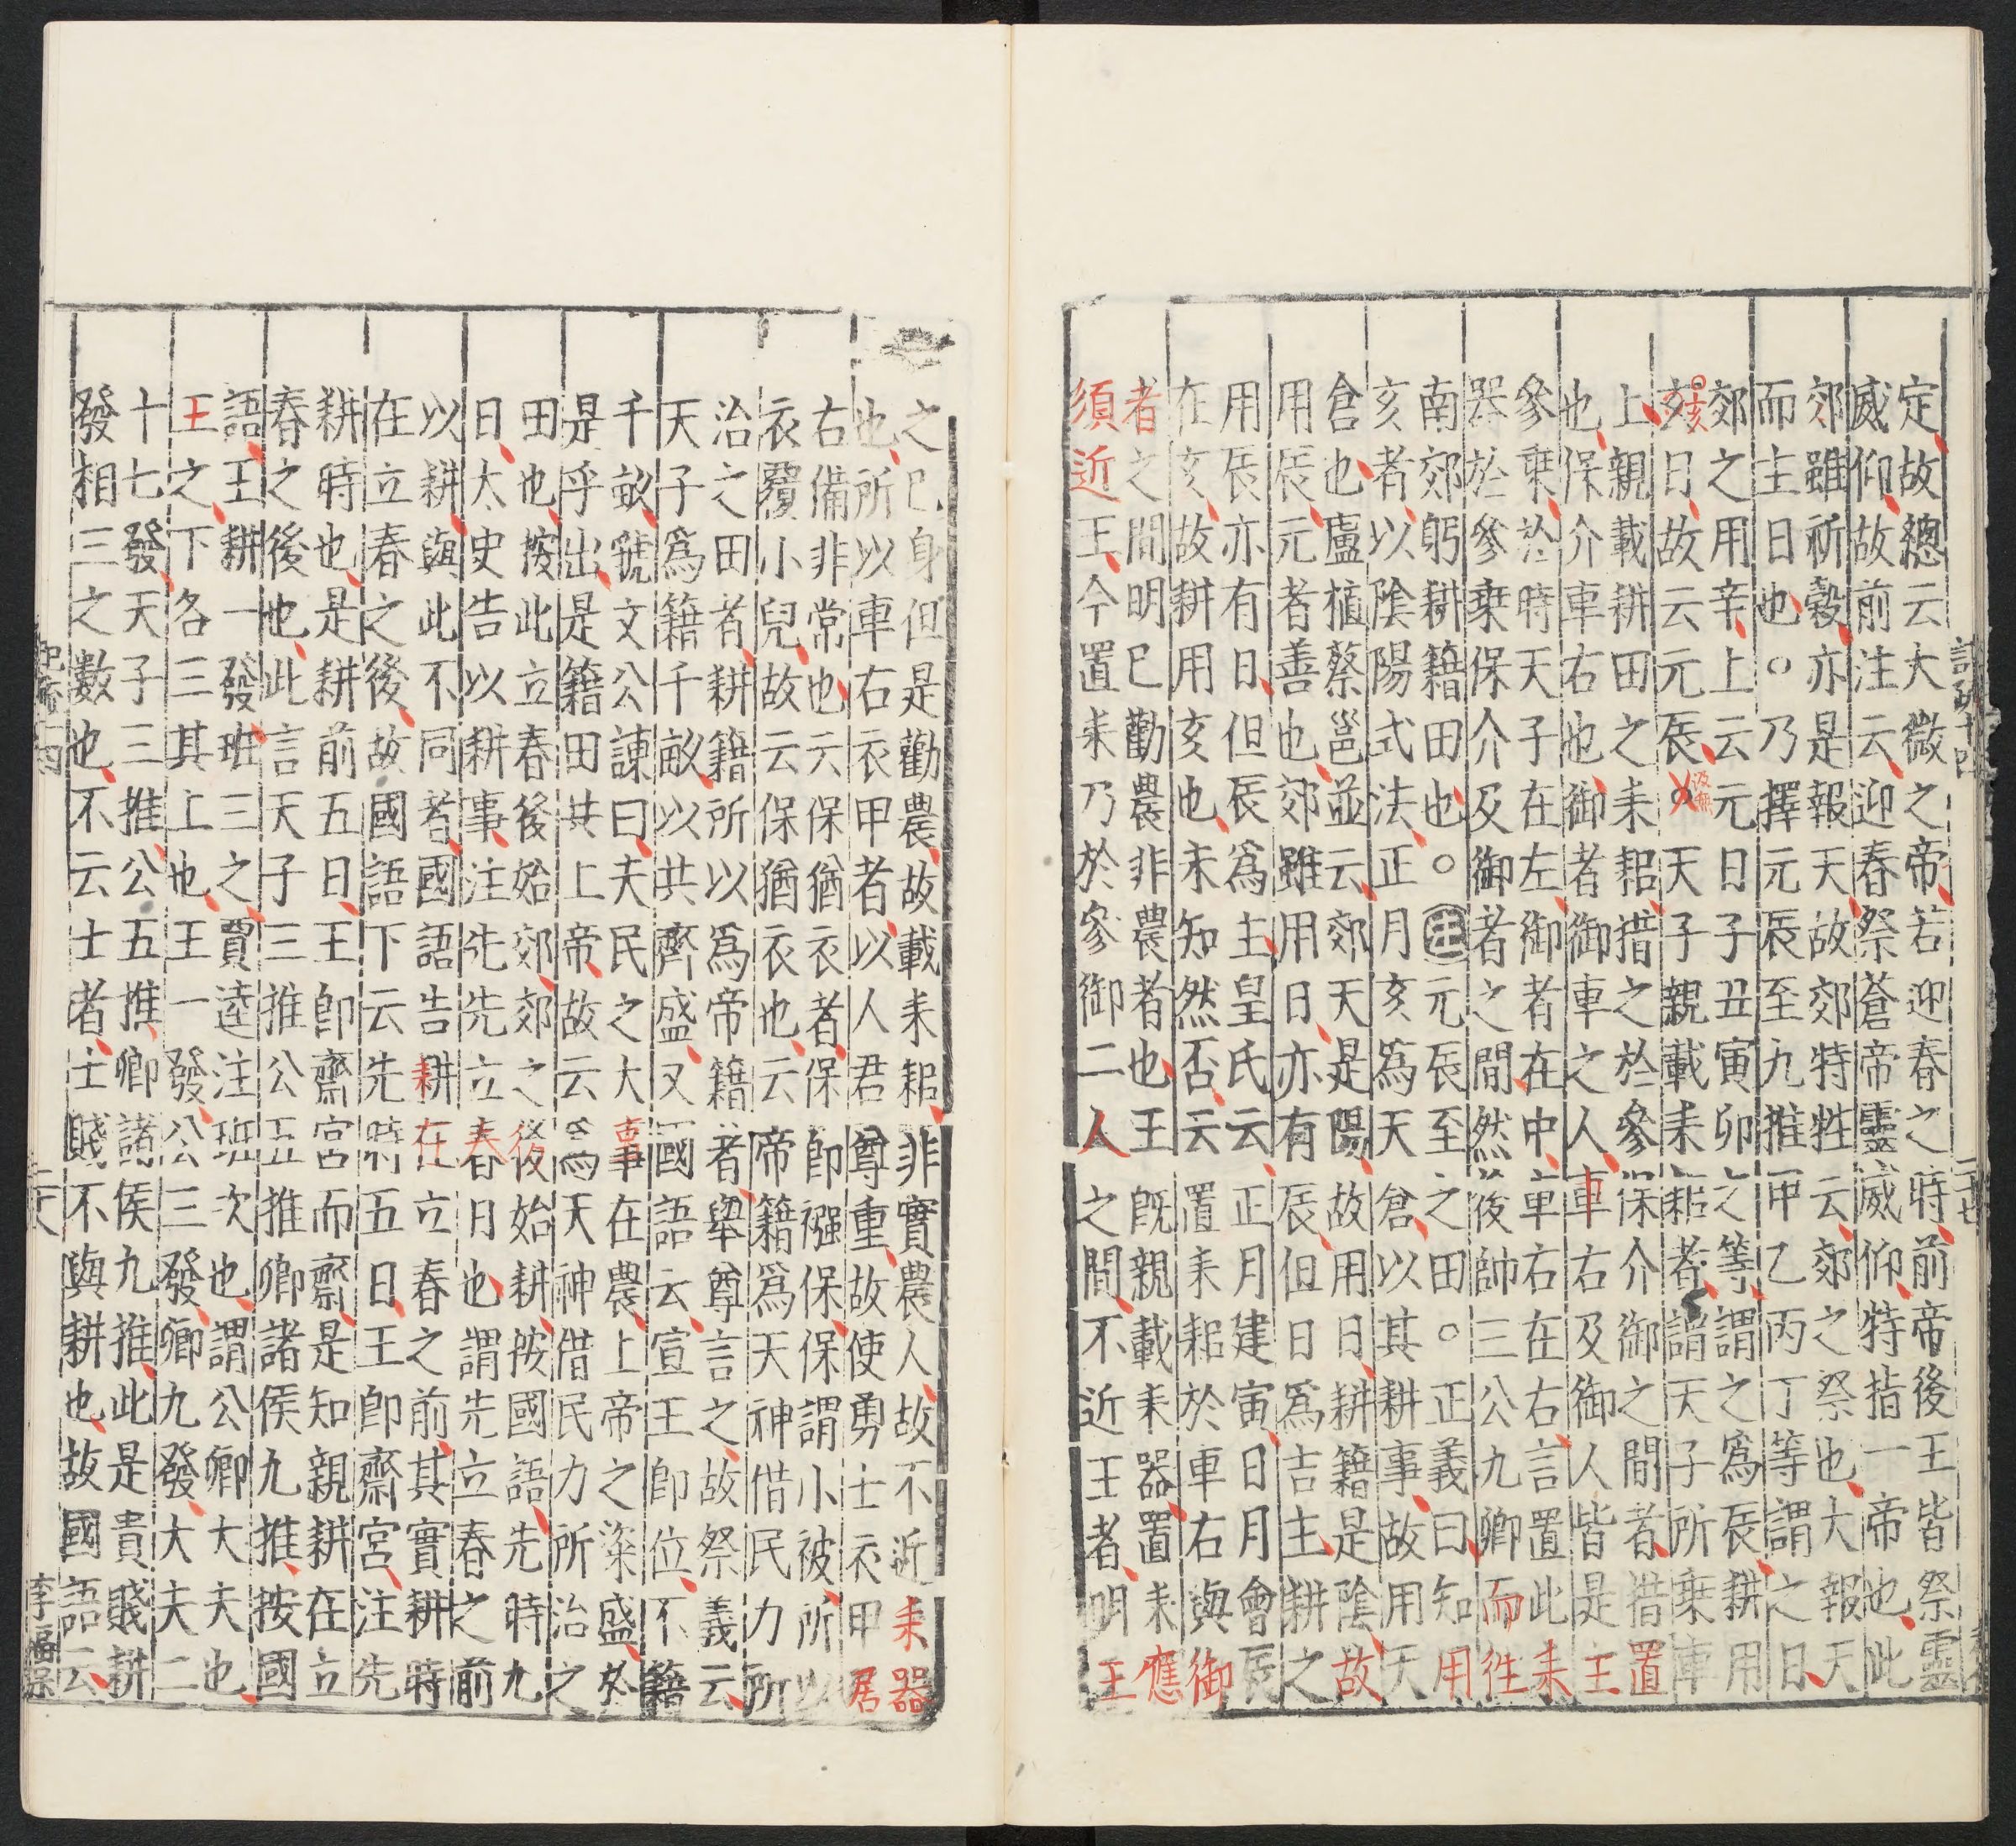 定故總云大微之帝若迎春之時前帝後王皆祭靈
威仰故前注云迎春祭蒼帝靈威仰特指一帝也此
郊雖祈穀亦是報天故郊特牲云郊之祭也大報天
而主日也○乃擇元辰至九推甲乙丙丁等謂之日
郊之用辛上云元日子丑寅卯之等謂之為辰耕用
亥日故云元辰○天子親載耒耜者謂天子所乗車
上親載耕田之耒耜措之於參保介御之間者措置
也保介車右也御者御車之人車右及御人皆是主
參乗於時天子在左御者在中車右在右言置此耒
器於參乗保介及御者之間然後帥三公九卿而徃
南郊躬耕籍田也○注元辰至之田○正義曰知用
亥者以陰陽式法正月亥爲天倉以其耕事故用天
倉也盧植蔡邕並云郊天是陽故用日耕籍是陰故
用辰元者善也郊雖用日亦有辰但日爲吉主耕之
用辰亦有日但辰爲主皇氏云正月建寅日月會辰
在亥故耕用亥也未知然否云置耒耜於車右與御
者之間明巳勸農非農者也王既親載耒器置耒應
須近王今置耒乃於參御二人之間不近王者明王
記疏十四
二十七
之巳身但是勸農故載耒耜非實農人故不近耒器
也所以車右衣甲者以人君尊重故使勇士衣甲居
右備非常也云保猶衣者保即襁保保謂小被所以
衣覆小兒故云保猶衣也云帝籍爲天神借民力所
治之田者耕籍所以爲帝籍者舉尊言之故祭義云
天子爲籍千畝以共齊盛又國語云宣王即位不籍
千畝虢文公諫曰夫民之大事在農上帝之粢盛於
是乎出是籍田共上帝故云爲天神借民力所治之
田也按此立春後始郊郊之後始耕按國語先時九
日太史告以耕事注先先立春月也謂先立春之前
以耕與此不同者國語告耕在立春之前其實耕時
在立春之後故國語下云先時五日王即齋宮注先
耕時也是耕前五日王即齋宮而齋是知親耕在立
春之後也此言天子三推公五推卿諸侯九推按國
語王耕一發班三之賈逵注班次也謂公卿大夫也
王之下各三其上也王一發公三發卿九發大夫二
十七發天子三推公五推卿諸侯九推此是貴賤耕
發相三之數也不云士者士賤不與耕也故國語云